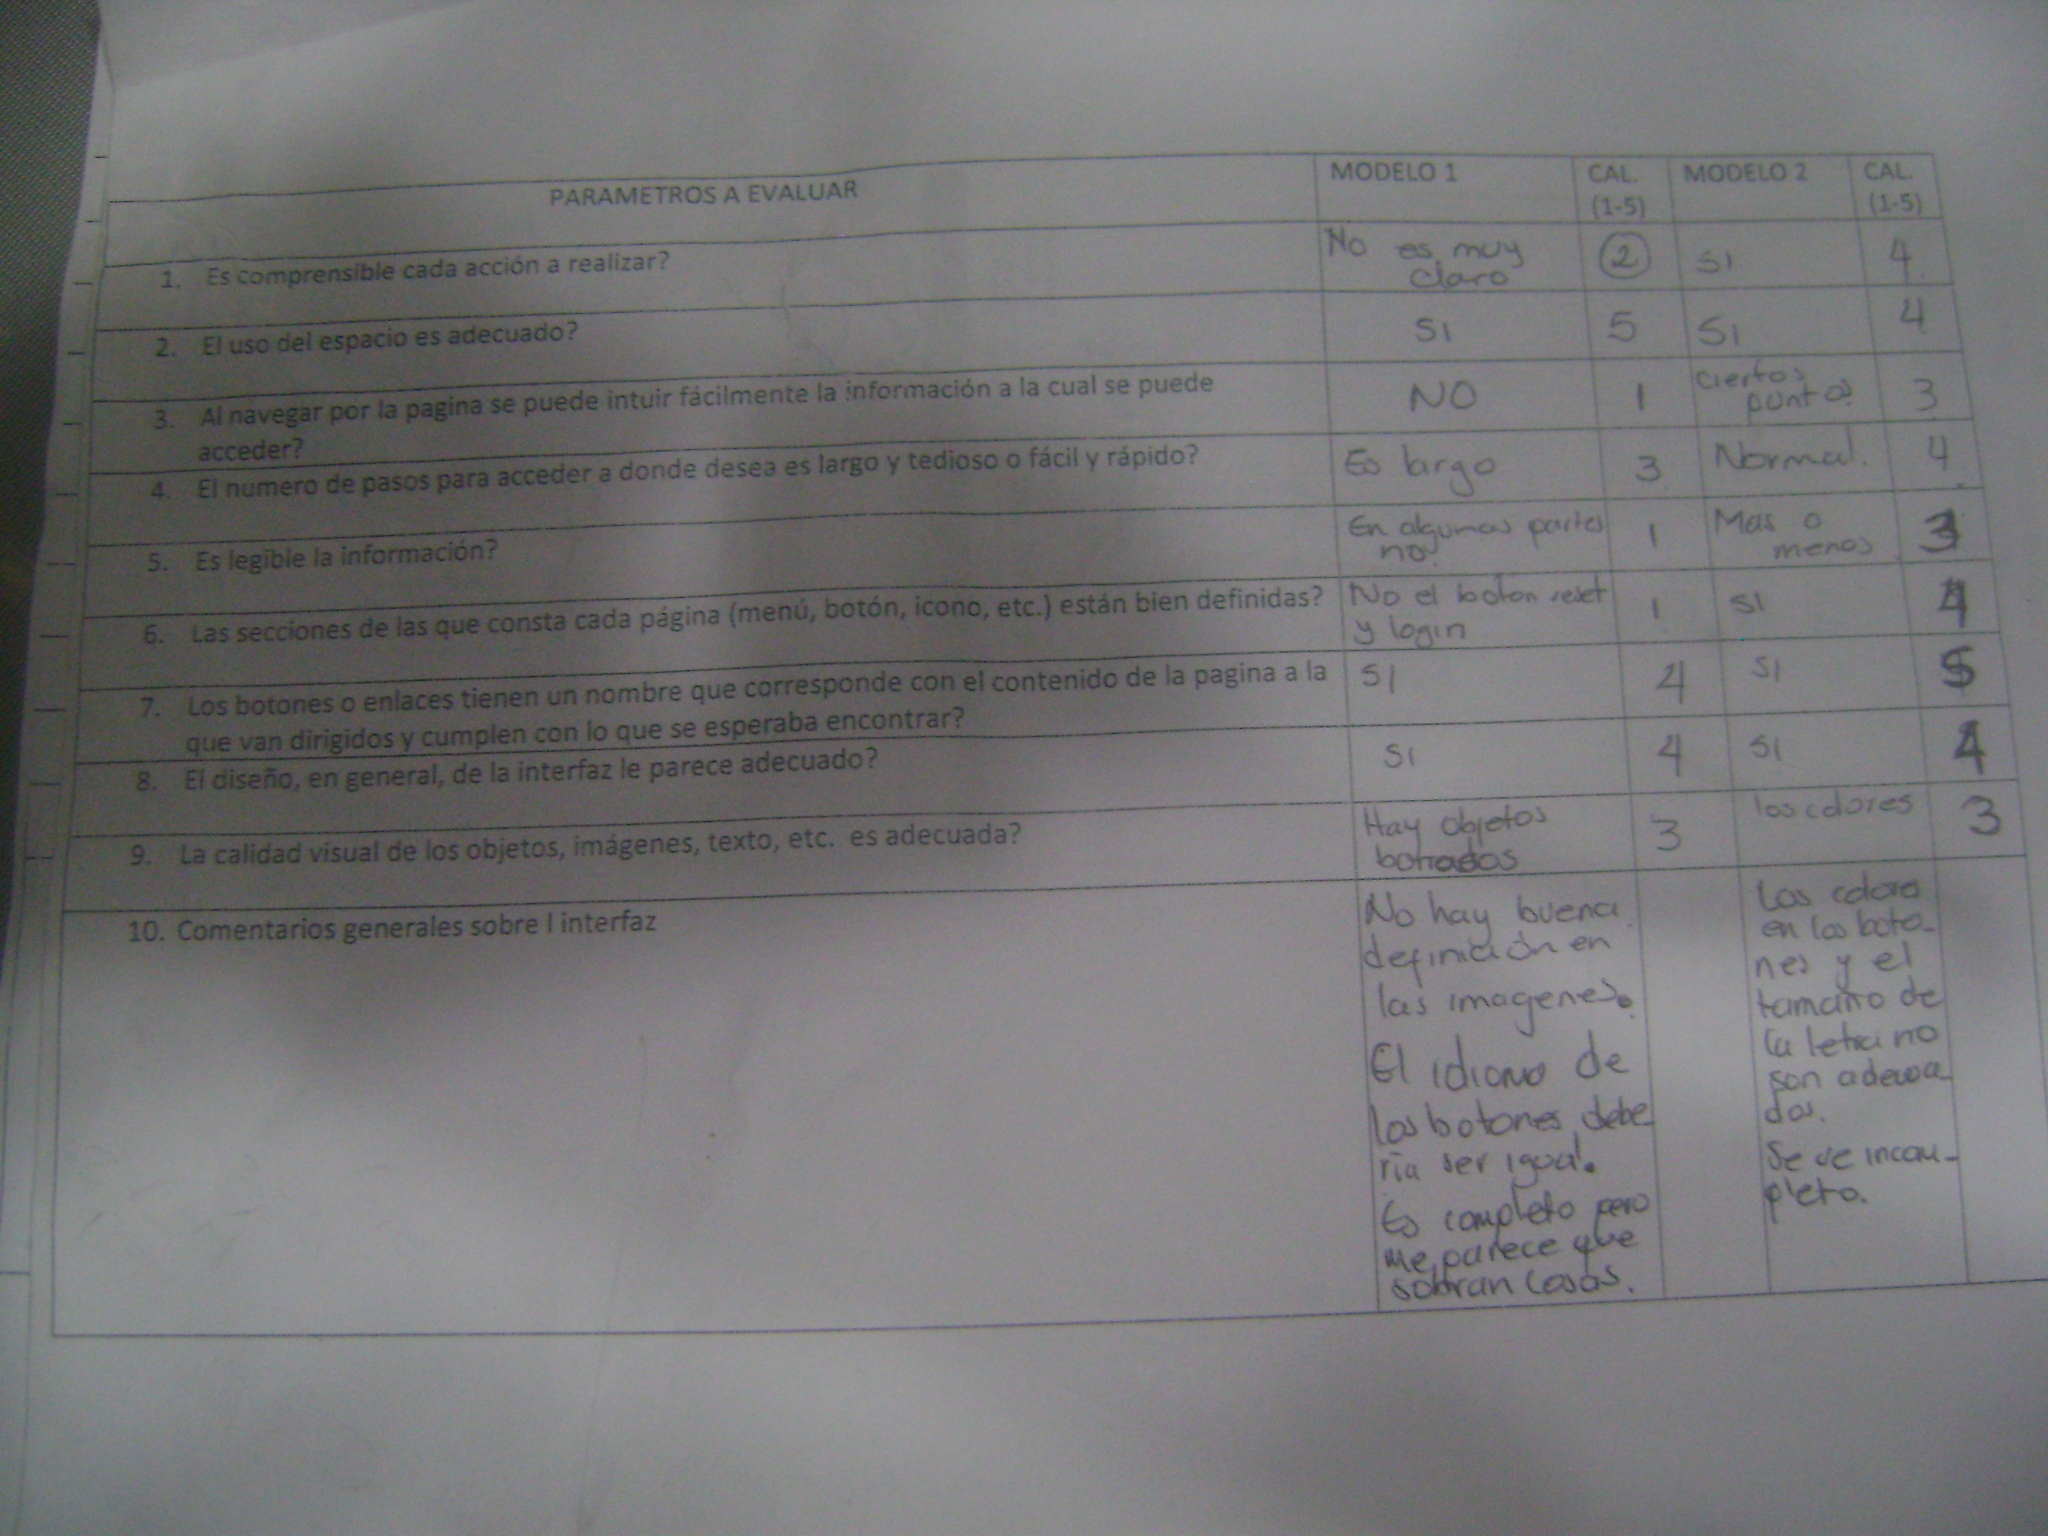 PARAMETROS A EVALUAR MODELO 1 CAL. (1-5) MODELO 2 CAL. (1-5)
1. Es comprensible cada acción a realizar? No es muy claro 2 SI 4
2. El uso del espacio es adecuado? SI 5 SI 4
3. Al navegar por la pagina se puede intuir fácilmente la información a la cual se puede NO 1 ciertos puntos 3
acceder?
4. El numero de pasos para acceder a donde desea es largo y tedioso o fácil y rápido? Es largo 3 Normal. 4
5. Es legible la información? En algunas partes no. 1 Mas o menos 3
6. Las secciones de las que consta cada página (menú, botón, icono, etc.) están bien definidas? No el boton reset y login 1 SI 4
7. Los botones o enlaces tienen un nombre que corresponde con el contenido de la pagina a la SI 4 SI 5
que van dirigidos y cumplen con lo que se esperaba encontrar?
8. El diseño, en general, de la interfaz le parece adecuado? SI 4 SI 4
9. La calidad visual de los objetos, imágenes, texto, etc. es adecuada? Hay objetos borrados 3 los colores 3
10. Comentarios generales sobre l interfaz
No hay buena
definición en
las imagenes.
El idioma de
los botones debe
ría ser igual.
Es completo pero
me parece que
sobran cosas.
Los colores
en los boto-
nes y el
tamaño de
la letra no
son adecua-
dos.
Se ve incom-
pleto.